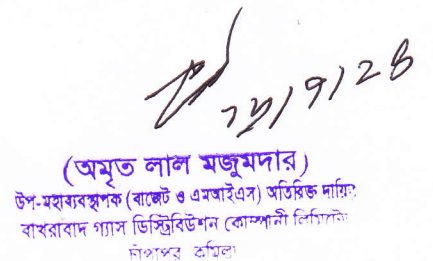 ২৯/৭/২৪
(অমৃত লাল মজুমদার)
উপ-মহাব্যবস্থাপক (বাজেট ও এমআইএস) অতিরিক্ত দায়িত্ব
বাখরাবাদ গ্যাস ডিস্ট্রিবিউশন কোম্পানী লিমিটেড
চাঁপাপুর, কুমিল্লা